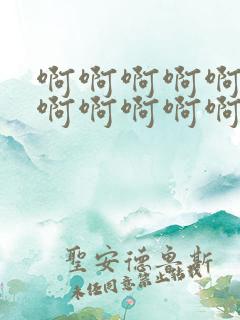 啊啊啊啊啊
啊啊啊啊啊
聖安德魯斯
未经同意禁止转载